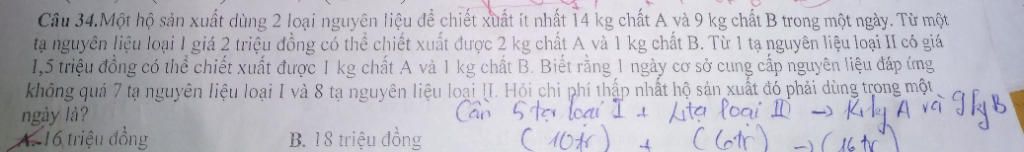 Câu 34. Một hộ sản xuất dùng 2 loại nguyên liệu để chiết xuất ít nhất 14 kg chất A và 9 kg chất B trong một ngày. Từ một
tạ nguyên liệu loại I giá 2 triệu đồng có thể chiết xuất được 2 kg chất A và 1 kg chất B. Từ 1 tạ nguyên liệu loại II có giá
1,5 triệu đồng có thể chiết xuất được 1 kg chất A và 1 kg chất B. Biết rằng 1 ngày cơ sở cung cấp nguyên liệu đáp ứng
không quá 7 tạ nguyên liệu loại I và 8 tạ nguyên liệu loại II. Hỏi chi phí thấp nhất hộ sản xuất đó phải dùng trong một
ngày là?
Cần 5 tạ loại I + 4 tạ loại II → kg A và 9 kg B
A. 16 triệu đồng B. 18 triệu đồng (10tr) + (6tr) → (16tr)